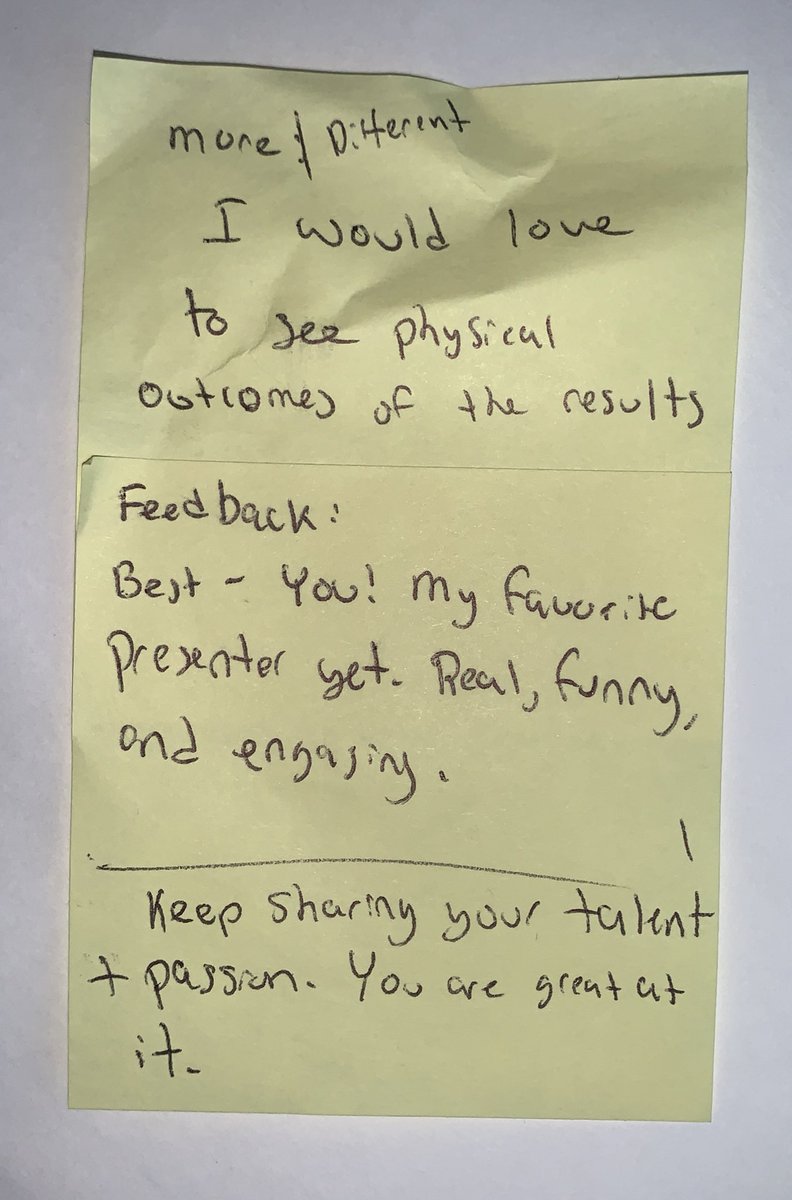 more & Different
I would love
to see physical
outcomes of the results
Feedback:
Best - You! My favorite
Presenter yet. Real, funny,
and engaging.
Keep sharing your talent
+ passion. You are great at
it.